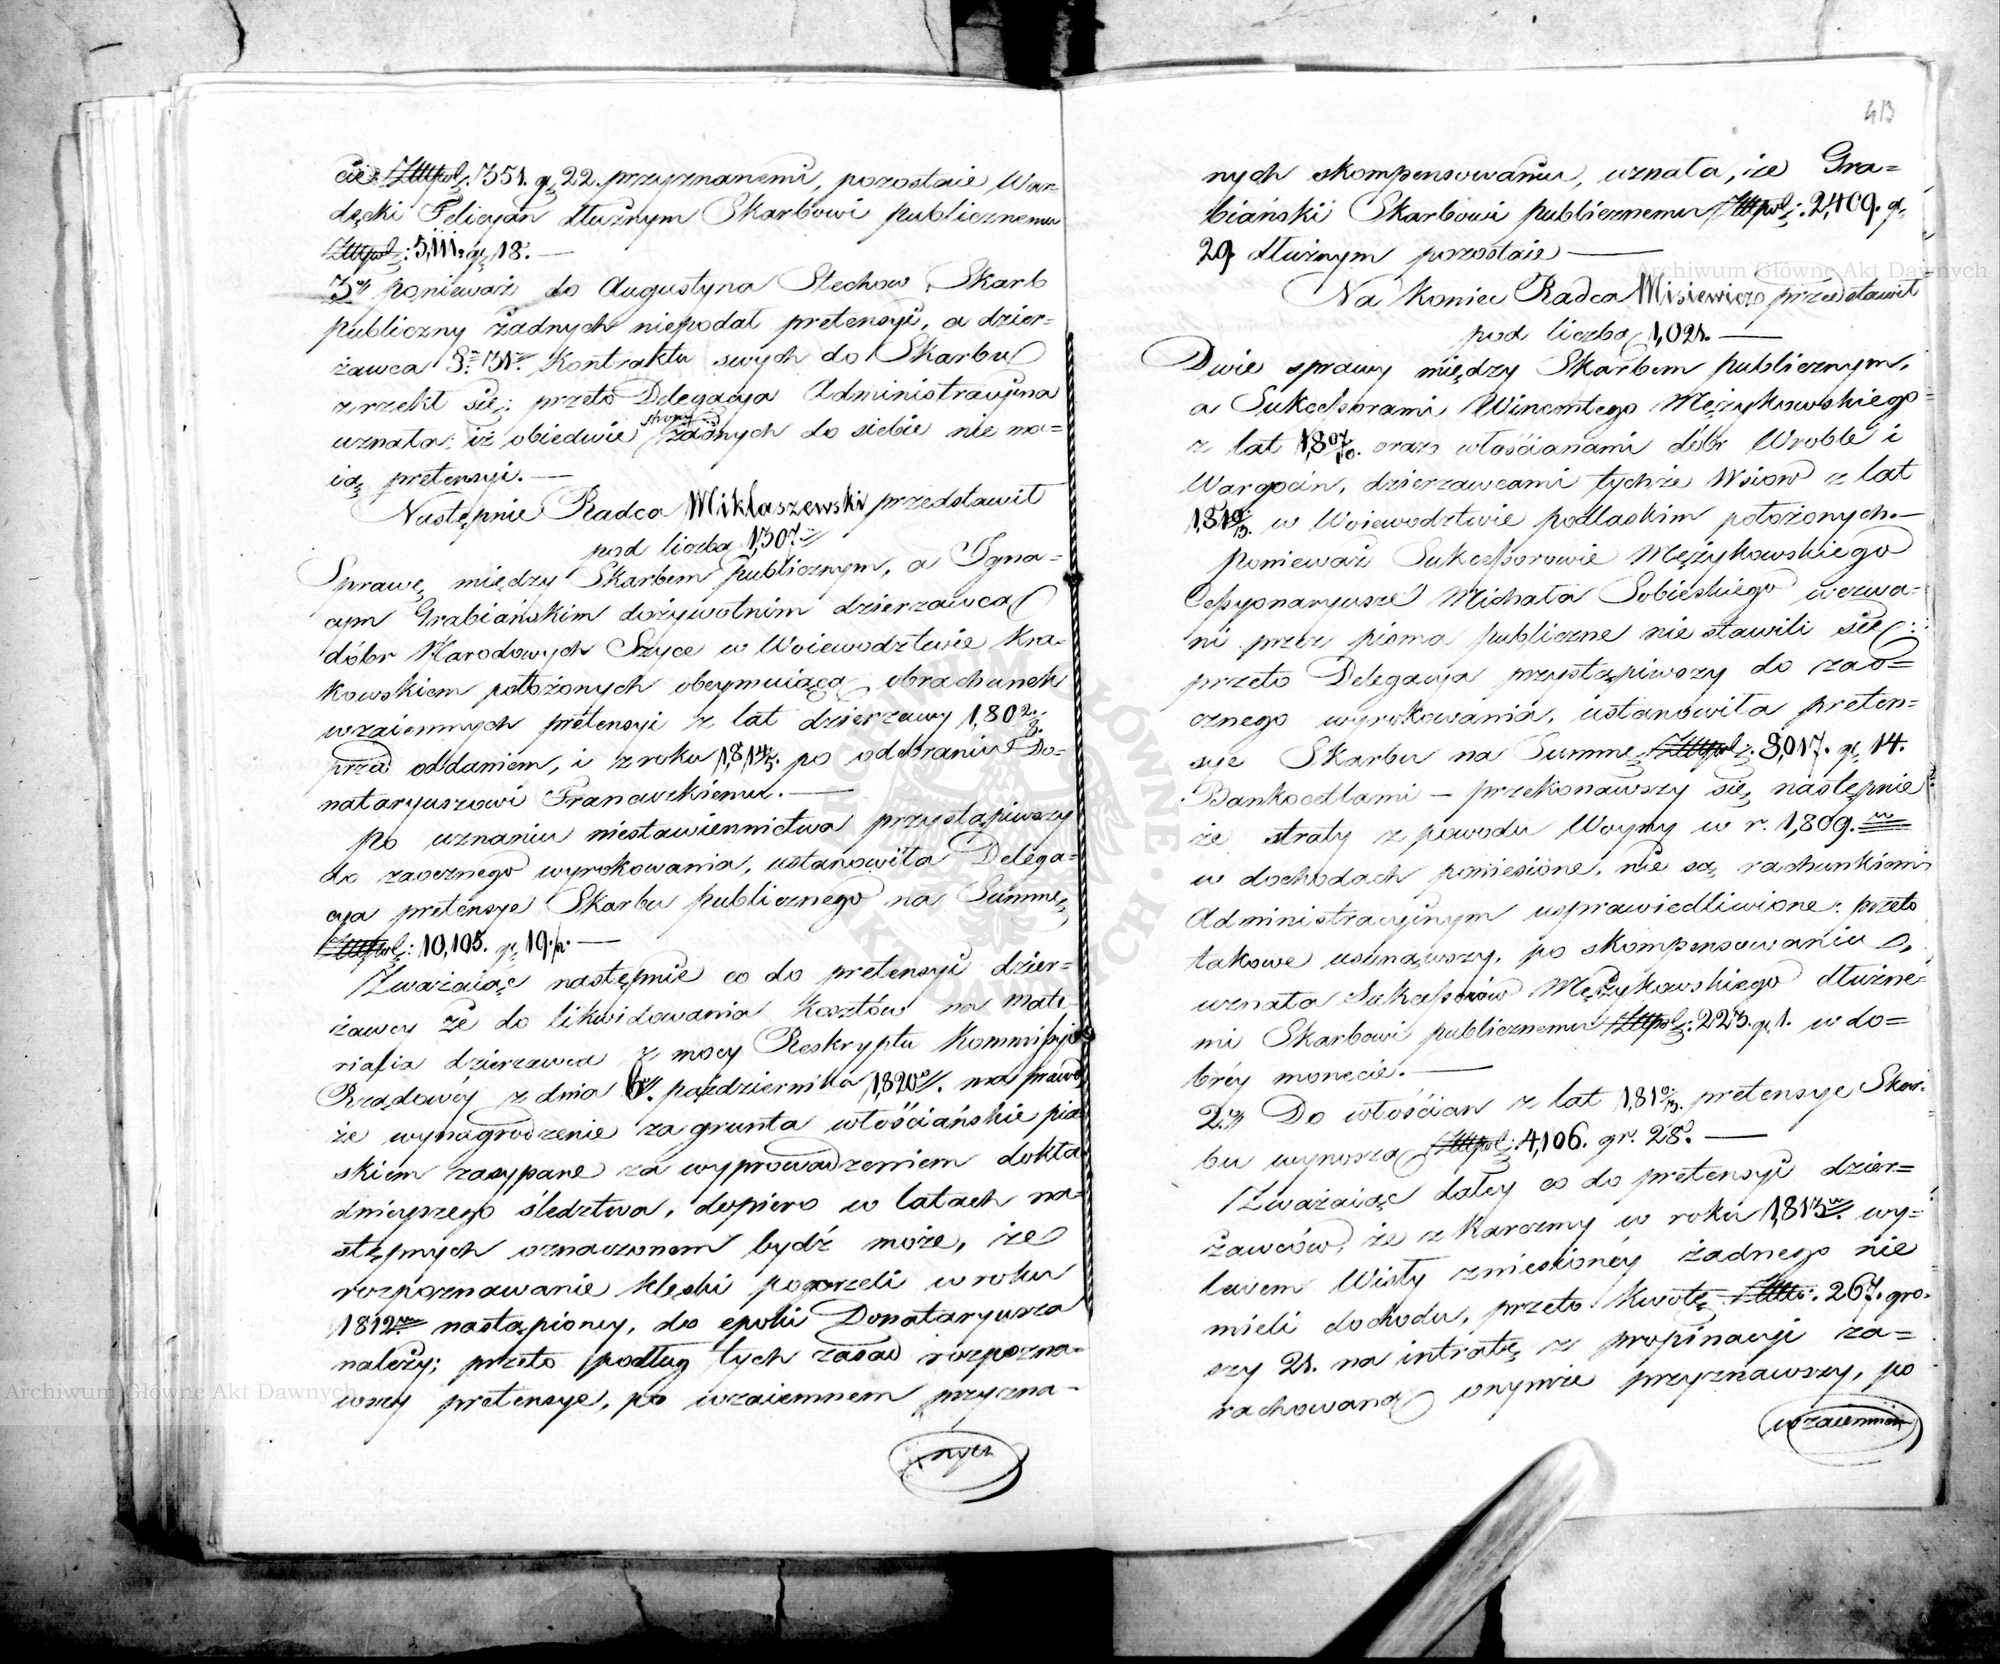 cie Złtpol: 351. gr 22. przyznanemi, pozostaie War-
dęcki Felicyan dłużnym Skarbowi publicznemu
Złtpol: 5,111. gr 18. —
3. ponieważ do Augustyna Slechow Skarb
publiczny żadnych niepodał pretensyi, a dzier-
żawca Kontraktu swych do Skarbu
zrzekł się; przeto Delegacya Administracyina
uznała: iż obiedwie strony żadnych do siebie nie ma=
ią pretensyi. —
Następnie Radca Miklaszewski przedstawił
pod liczbą 1,307.
Sprawę między Skarbem publicznym, a Igna=
cym Grabiańskim dożywotnim dzierzawcą
dóbr Narodowych Szyce w Woiewodztwie Kra-
kowskiem położonych obeymuiącą obrachunek
wzaiemnych pretensyi z lat dzierzawy 1,802/3.
przed oddaniem, i z roku po odebraniu Do-
nataryuszowi Franawskiemu. —
Po uznaniu niestawiennictwa przystąpiwszy
do zaocznego wyrokowania, ustanowiła Delega=
cya pretensye Skarbu publicznego na Summę
Złtpol: 10,105. gr 19. —
Zważaiąc następnie co do pretensyi dzier=
żawcy że do likwidowania Kosztów na mate
riałia dzierzawca z mocy Reskryptu Kommissyi
Rządowéy z dnia 6. października 1,820. ma prawo
że wynagrodzenie za grunta włościańskie pia-
skiem zasypane za wyprowadzeniem dokła
dnieyszego śledztwa, dopiero w latach na=
stępnych oznaczonem bydź może, że
rozpoznawanie klęski pogorzeli w roku
1812 nastąpioney, do epoki Donataryusza
należy; przeto podług tych zasad rozpozna=
wszy pretensye, po wzaiemnem przyzna-
nych
413
nych skompensowaniu, uznała, że Gra=
biański Skarbowi publicznemu Złtpol: 2,409. gr
29 dłużnym pozostaie —
Na koniec Radca Misiewicz przedstawił
pod liczbą 1,021. —
Dwie sprawy między Skarbem publicznym,
a Sukcessorami Wincentego Mężykowskiego
z lat 18 07/10. oraz włościanami dóbr Wroble i
Wargocin, dzierzawcami tychże Wsiow z lat
1810/13. w Woiewodztwie podlaskim położonych. —
Ponieważ Sukcessorowie Mężykowskiego
Cessyonaryusze Michała Sobieskiego wezwa=
ni przez pisma publiczne nie stawili się:
przeto Delegacya przystąpiwszy do zao=
cznego wyrokowania, ustanowiła preten=
sye Skarbu na Summę Złtpol: 3,017. gr 14.
Bankocetlami — przekonawszy się następnie
że straty z powodu Woyny w r. 1,809.
w dochodach poniesione, nie są rachunkiem
Administracyinym usprawiedliwione: przeto
takowe usunąwszy, po skompensowaniu
uznała Sukcessorów Mężykowskiego dłużne-
mi Skarbowi publicznemu Złtpol: 223. gr 1. w do=
bréy monecie. —
2. Do włościan z lat 1810/13. pretensye Skar-
bu wynoszą Złtpol: 4,106. gr. 28. —
Zważaiąc daley co do pretensyi dzier=
żawców, że z Karczmy w roku 1,813. wy=
lewem Wisły zniesionéy żadnego nie
mieli dochodu, przeto kwotę 267. gro-
szy 21. na intratę z propinacyi za=
rachowaną onymże przyznawszy, po
wzaiemném